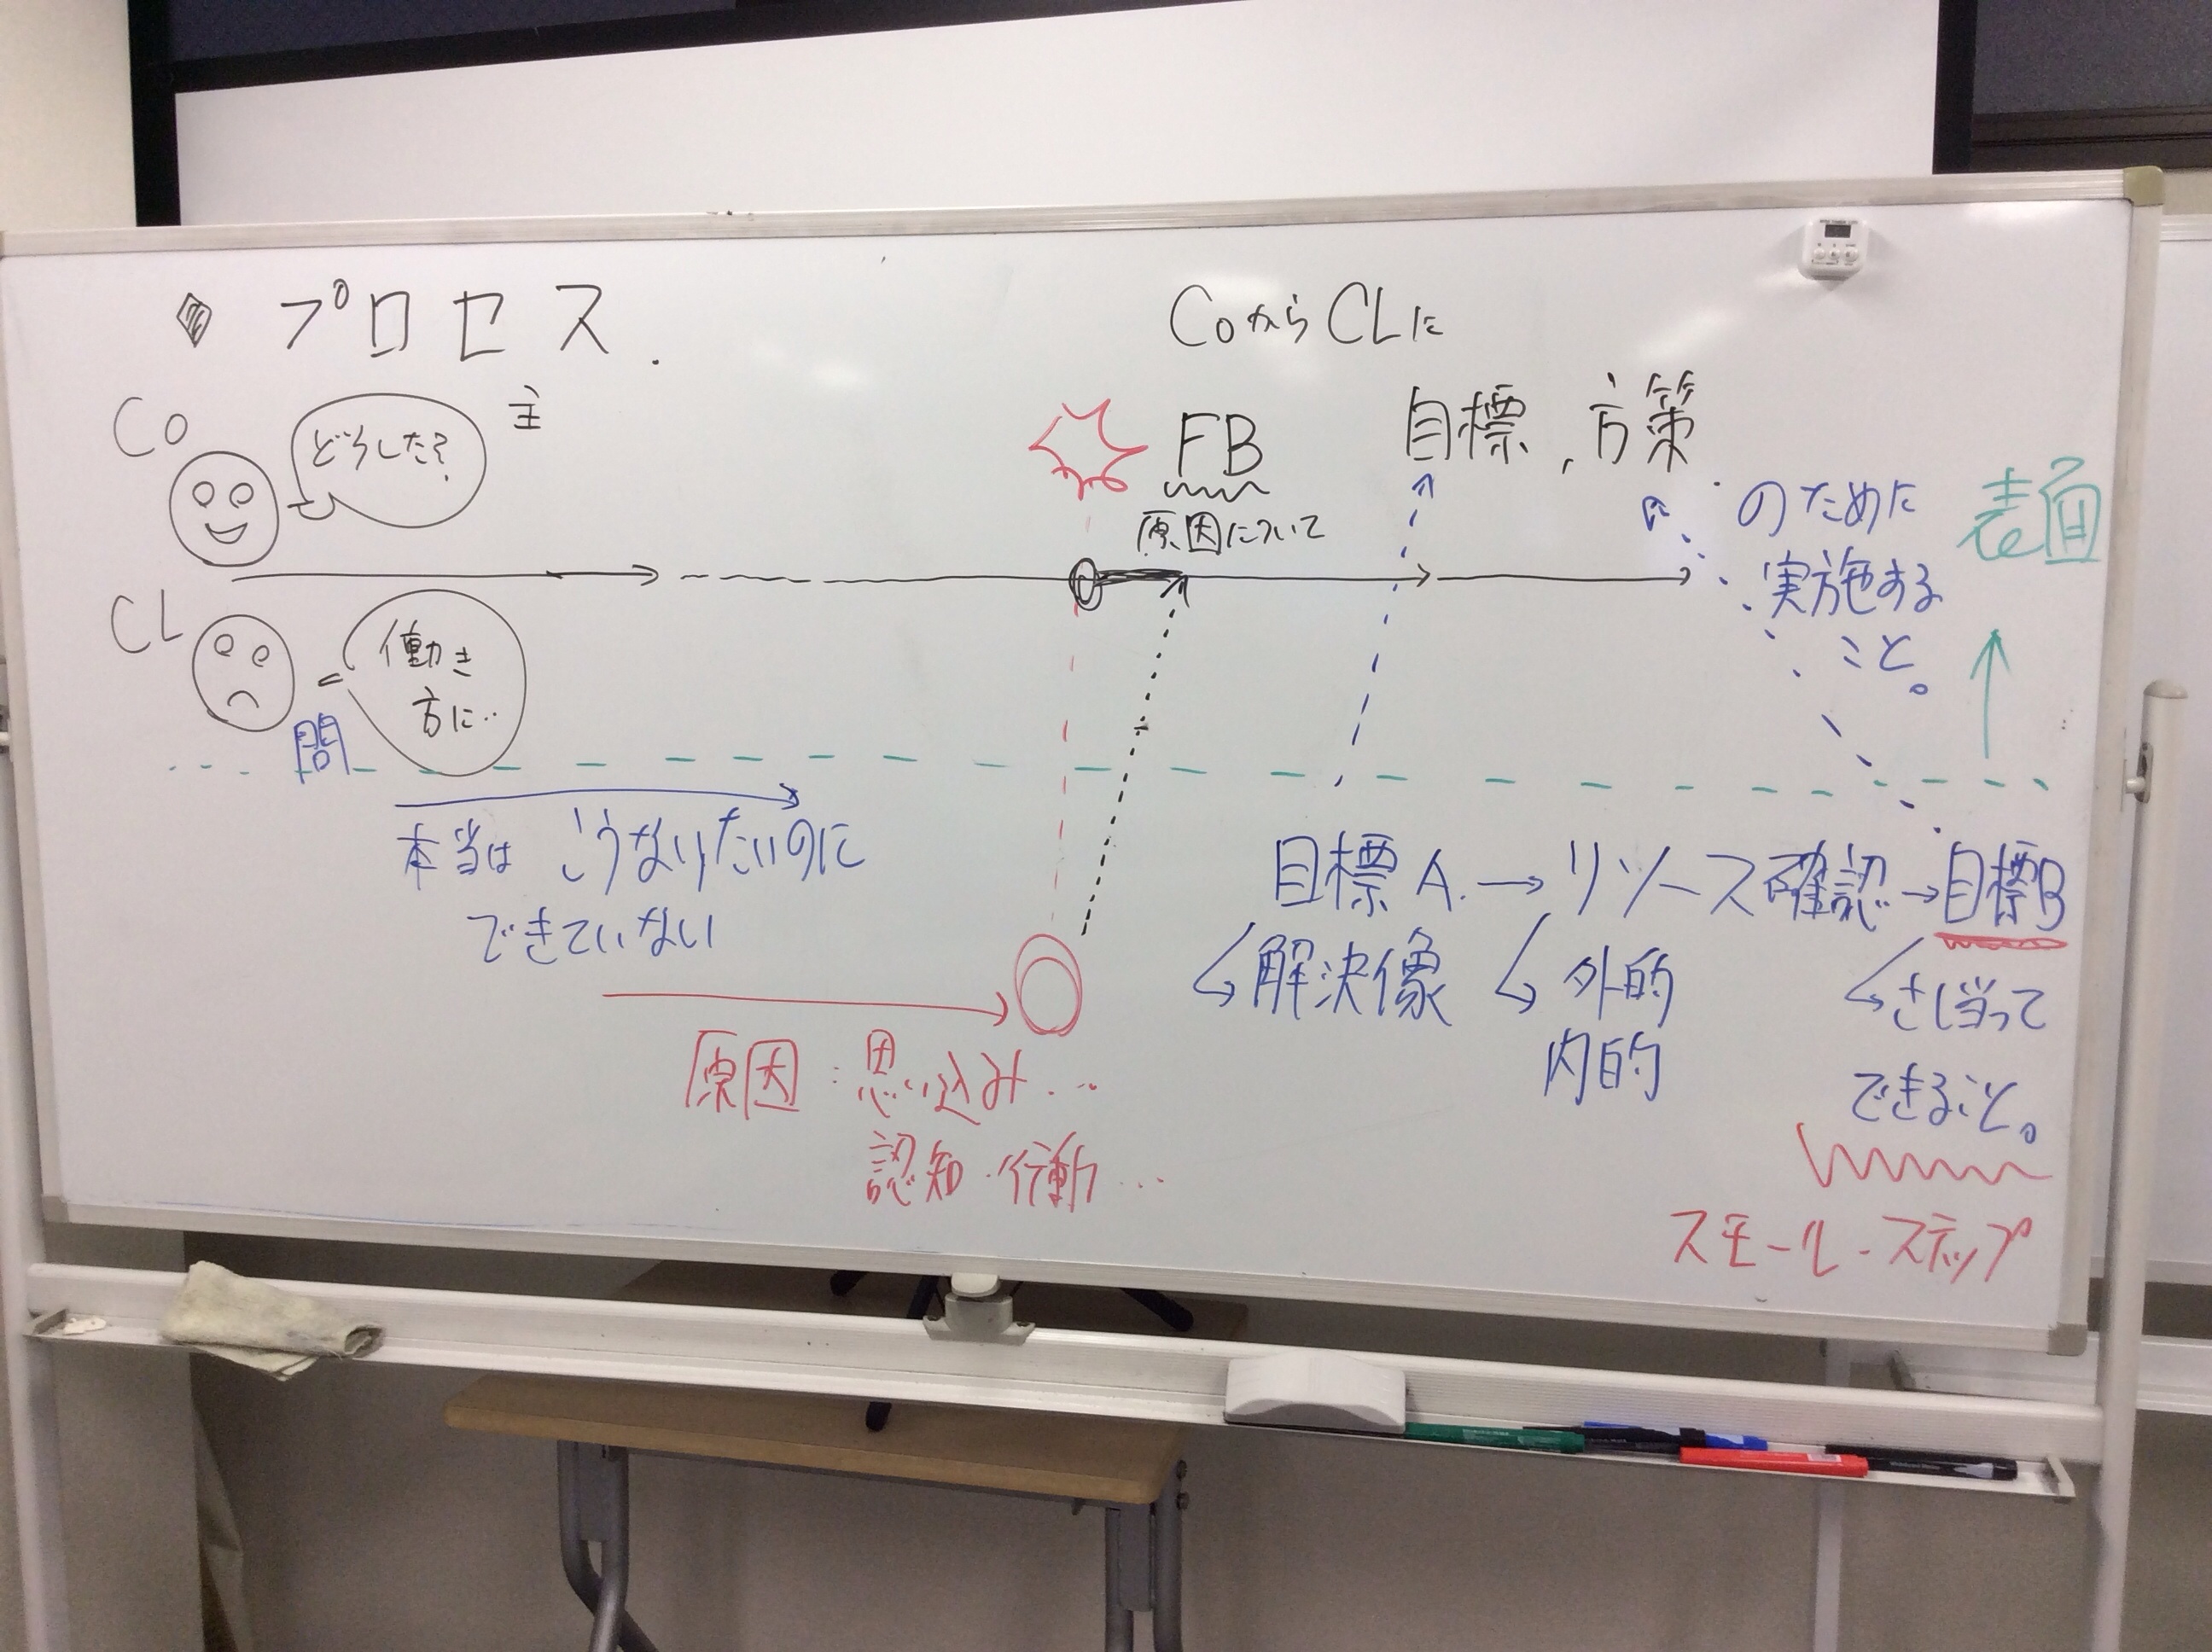 ◆ プロセス.
CoからCLに
Co
どうした?
主
FB
原因について
目標、方策
のために
実施する
こと。
表面
CL
働き
方に‥
問
本当は こうなりたいのに
できていない
目標A. → リソース確認 → 目標B
解決像
外的
内的
さし当って
できること。
原因:思い込み…
認知・行動…
スモール・ステップ